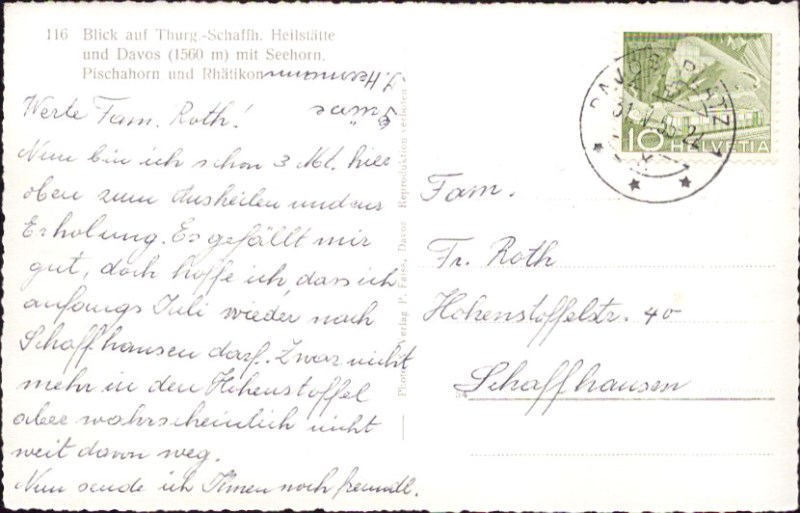 116 Blick auf Thurg.-Schaffh. Heilstätte
und Davos (1560 m) mit Seehorn,
Pischahorn und Rhätikon
Werte Fam. Roth!
Nun bin ich schon 3 Mt. hier
oben zum Ausheilen und zur
Erholung. Es gefällt mir
gut, doch hoffe ich, dass ich
anfangs Juli wieder nach
Schaffhausen darf. Zwar nicht
mehr in den Hohenstoffel
aber wahrscheinlich nicht
weit davon weg.
Nun sende ich Ihnen noch freundl.
Grüsse
J. Herrmann
Photo Verlag P. Faiss, Davos Reproduktion verboten
DAVOS PLATZ
10 HELVETIA
Fam.
Fr. Roth
Hohenstoffelstr. 40
Schaffhausen